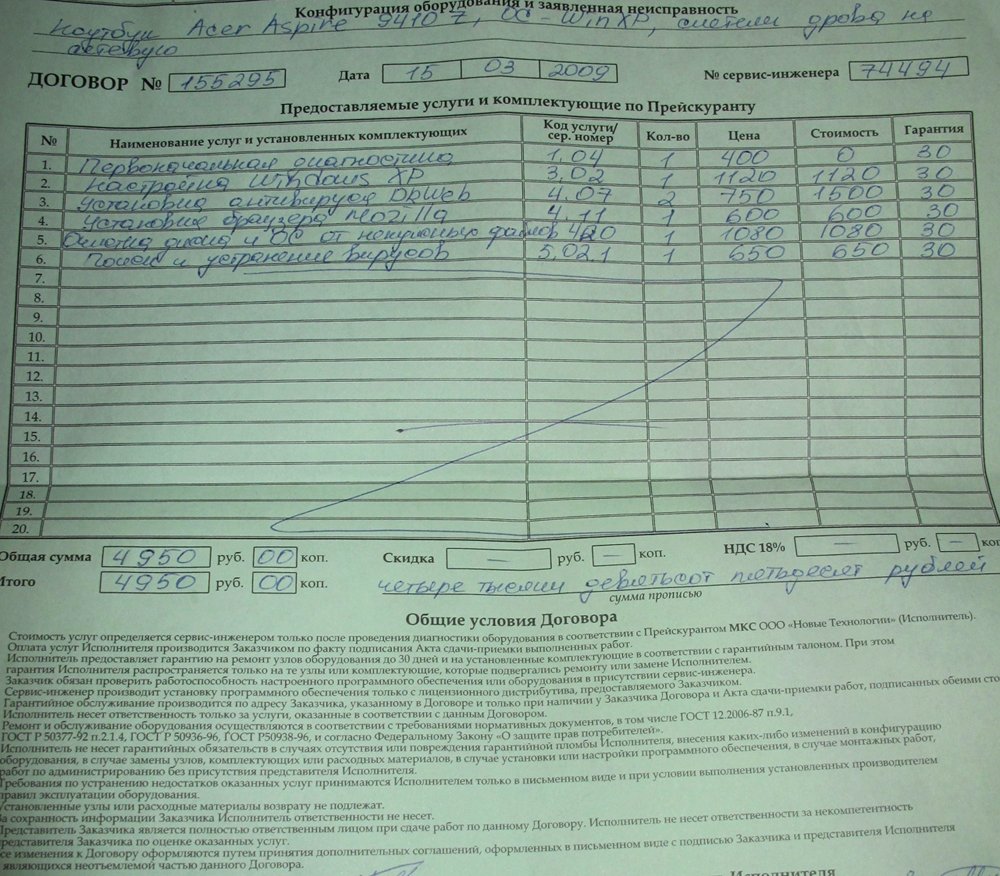 Конфигурация оборудования и заявленная неисправность
Ноутбук Acer Aspire 9410 7, ОС - WinXP, дрова на
сетевую
ДОГОВОР № 155295 Дата 15 03 2009 № сервис-инженера 74494
Предоставляемые услуги и комплектующие по Прейскуранту
№ Наименование услуг и установленных комплектующих Код услуги/ сер. номер Кол-во Цена Стоимость Гарантия
1. Первоначальная диагностика 1,04 1 400 0 30
2. Настройка Windows XP 3,02 1 1120 1120 30
3. Установка антивируса DrWeb 4.07 2 750 1500 30
4. Установка браузера Mozilla 4.11 1 600 600 30
5. Очистка диска и ОС от ненужных файлов 1 1080 1080 30
6. Поиск и устранение вирусов 5,02.1 1 650 650 30
7.
8.
9.
10.
11.
12.
13.
14.
15.
16.
17.
18.
19.
20.
Общая сумма 4950 руб. 00 коп. Скидка — руб. — коп. НДС 18% — руб. — коп
Итого 4950 руб. 00 коп. четыре тысячи девятьсот пятьдесят рублей
сумма прописью
Общие условия Договора
Стоимость услуг определяется сервис-инженером только после проведения диагностики оборудования в соответствии с Прейскурантом МКС ООО «Новые Технологии» (Исполнитель).
Оплата услуг Исполнителя производится Заказчиком по факту подписания Акта сдачи-приемки выполненных работ.
Исполнитель предоставляет гарантию на ремонт узлов оборудования до 30 дней и на установленные комплектующие в соответствии с гарантийным талоном. При этом
гарантия Исполнителя распространяется только на те узлы или комплектующие, которые подвергались ремонту или замене Исполнителем.
Заказчик обязан проверить работоспособность настроенного программного обеспечения или оборудования в присутствии сервис-инженера.
Сервис-инженер производит установку программного обеспечения только с лицензионного дистрибутива, предоставляемого Заказчиком.
Гарантийное обслуживание производится по адресу Заказчика, указанному в Договоре и только при наличии у Заказчика Договора и Акта сдачи-приемки работ, подписанных обеими сто
Исполнитель несет ответственность только за услуги, оказанные в соответствии с данным Договором.
Ремонт и обслуживание оборудования осуществляются в соответствии с требованиями нормативных документов, в том числе ГОСТ 12.2006-87 п.9.1,
ГОСТ Р 50377-92 п.2.1.4, ГОСТ Р 50936-96, ГОСТ Р50938-96, и согласно Федеральному Закону «О защите прав потребителей».
Исполнитель не несет гарантийных обязательств в случаях отсутствия или повреждения гарантийной пломбы Исполнителя, внесения каких-либо изменений в конфигурацию
оборудования, в случае замены узлов, комплектующих или расходных материалов, в случае установки или настройки программного обеспечения, в случае монтажных работ,
работ по администрированию без присутствия представителя Исполнителя.
Требования по устранению недостатков оказанных услуг принимаются Исполнителем только в письменном виде и при условии выполнения установленных производителем
правил эксплуатации оборудования.
Установленные узлы или расходные материалы возврату не подлежат.
За сохранность информации Заказчика Исполнитель ответственности не несет.
Представитель Заказчика является полностью ответственным лицом при сдаче работ по данному Договору. Исполнитель не несет ответственности за некомпетентность
представителя Заказчика по оценке оказанных услуг.
Все изменения к Договору оформляются путем принятия дополнительных соглашений, оформленных в письменном виде с подписью Заказчика и представителя Исполнителя
являющихся неотъемлемой частью данного Договора.
Исполнителя